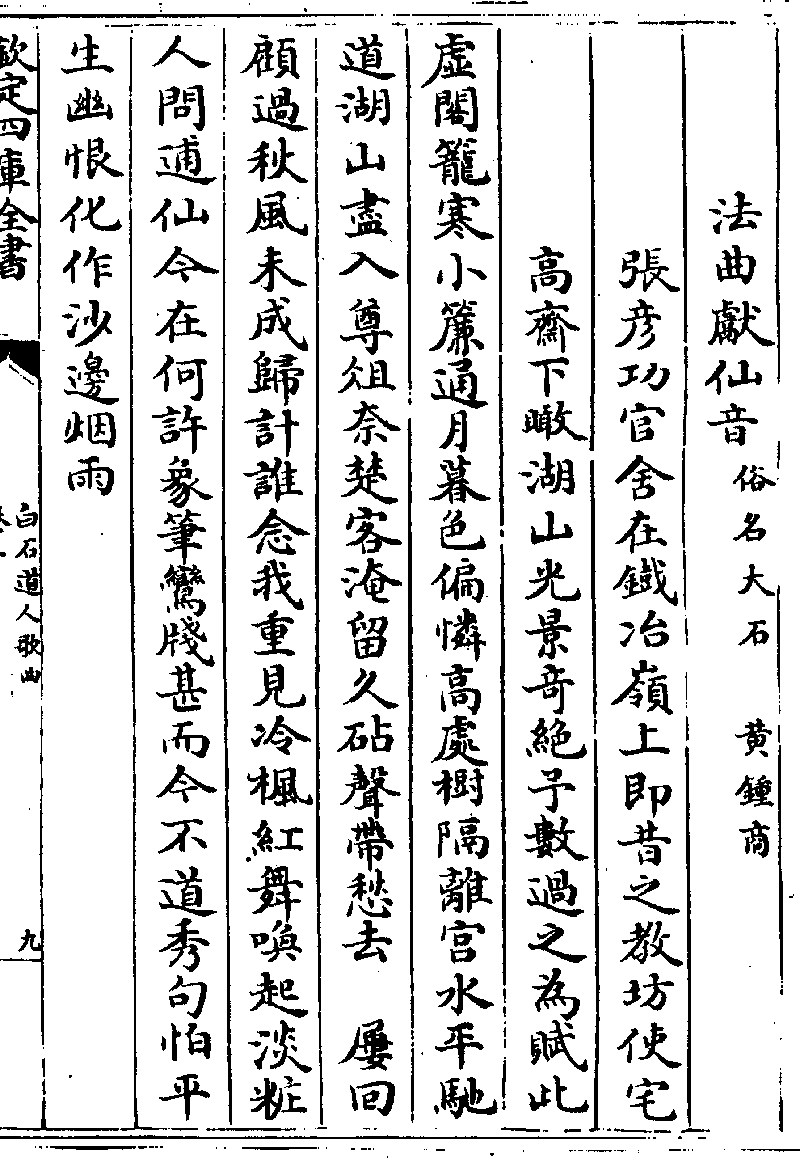 法曲獻仙音俗名大石　黄鍾商
張彦功官舍在鐵冶嶺上即昔之教坊使宅
高齋下瞰湖山光景奇絶予數過之為賦此
虚閣籠寒小簾通月暮色偏憐高處樹隔離宫水平馳
道湖山盡入尊俎奈楚客淹留久砧聲帶愁去　屢回
顧過秋風未成歸計誰念我重見冷楓紅舞喚起淡粧
人問逋仙今在何許象筆鸞牋甚而今不道秀句怕平
生幽恨化作沙邊烟雨
欽定四庫全書
白石道人歌曲
九